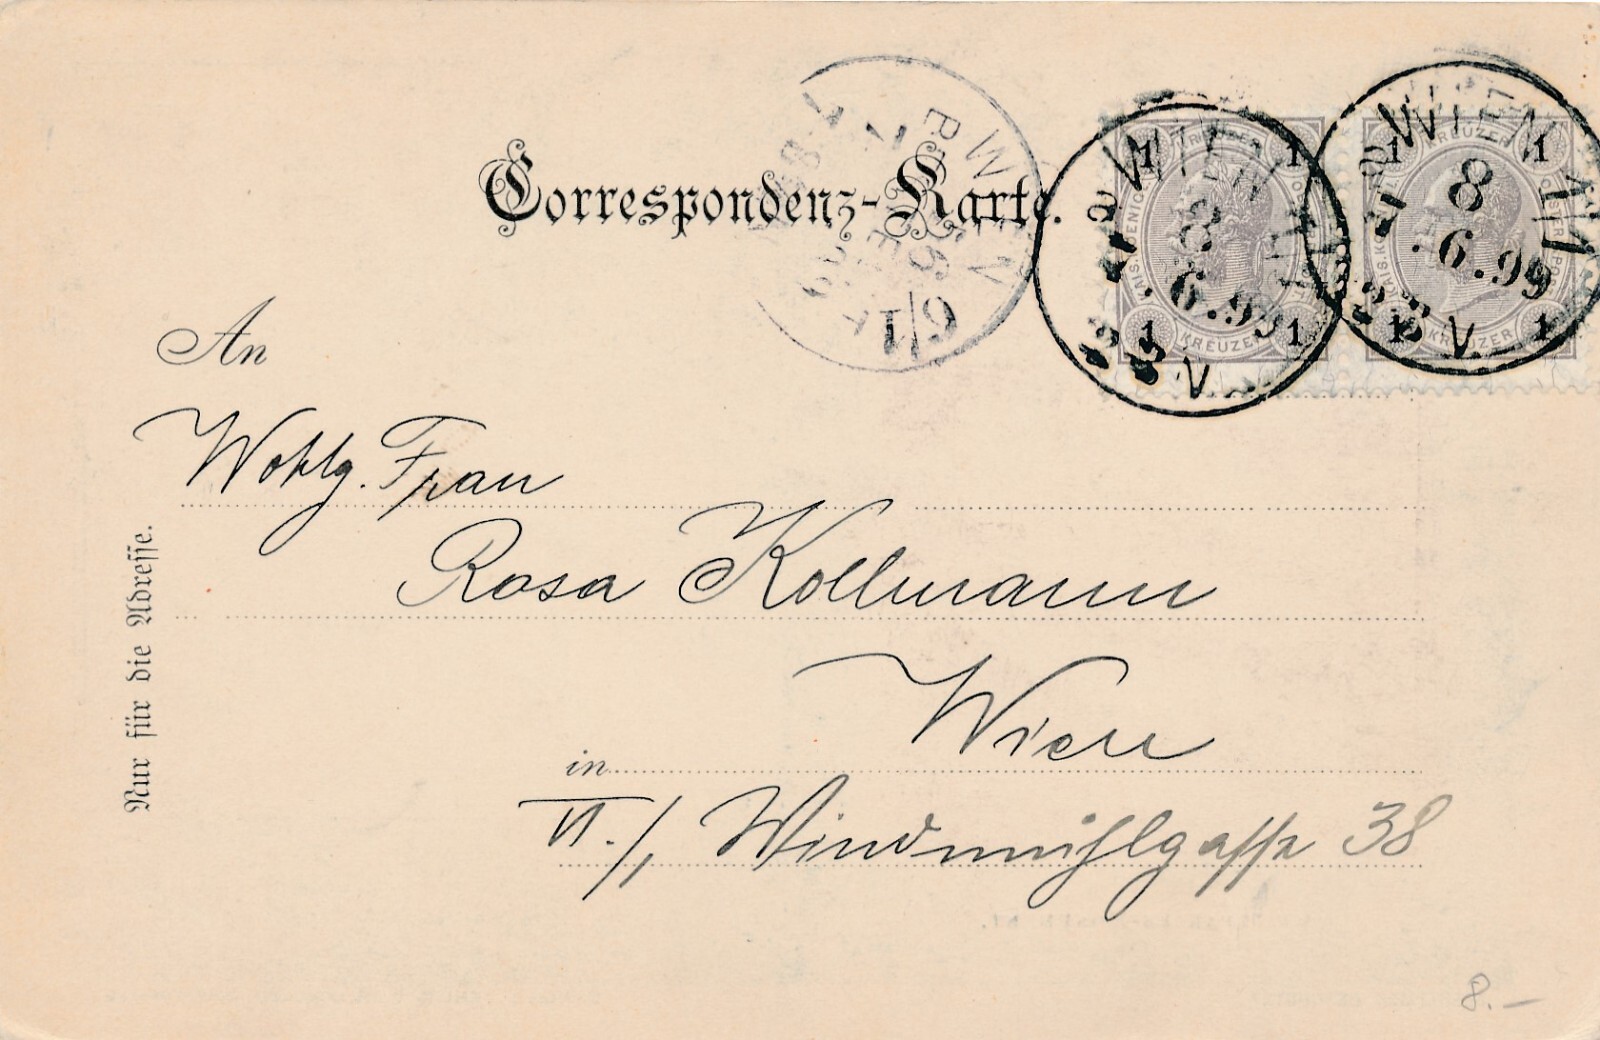 Correspondenz-Karte.
WIEN
8
6.99
V.
WIEN 1/1
8
.6.99
V.
WIEN
6/1
1 KREUZER 1
1 KREUZER 1
An
Wohlg. Frau
Rosa Kollmann
in Wien
VI./1 Windmühlgasse 38
Nur für die Adresse.
8.–